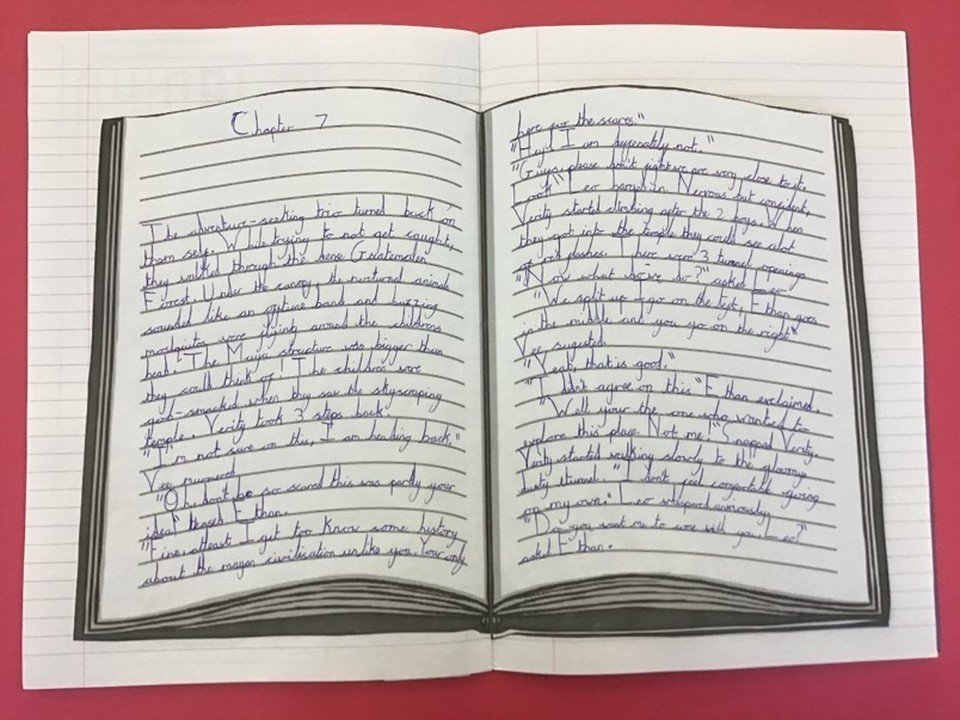 Chapter 7
The adventure-seeking trio turned back on
them self. While trying to not get caught,
they walked through the dense Guatemalan
Forest. Under the canopy, the nocturnal animals
sounded like an optune band and buzzing
mosquitos were flying around the childrens
head. The Maya structure was bigger than
they could think of! The children were
gob-smacked when they saw the skyscraping
temple. Verity took 3 steps back.
"I'm not sure on this, I am heading back."
Vee murmered.
"Oh, don't be so scared this was partly your
idea" teased Ethan.
"Fine, atleast I get too know some history
about the mayan civilisation unlike you. Your only
here for the scares."
"Hey! I am hyfenately not."
"Guys please don't fight we are very close to it.
Look!" Leo barged in. Nervous but confident,
Verity started climbing after the 2 boys. When
they got into the temple they could see alot
of red flashes. There were 3 tunnel openings
"Now what do we do?" asked Leo
"We split up I go on the left, Ethan goes
in the middle and you go on the right"
Vee sugested.
"Yeah, that is good."
"I didn't agree on this" Ethan exclaimed.
"Wall your the one who wanted to
explore this place. Not me!" Snapped Verity.
Verity started walking slowly to the gloomy,
dusty tunnel. "I don't feel comfortable going
on my own." Leo whispered anxiously
"Do you want me to come with you Leo?"
asked Ethan.